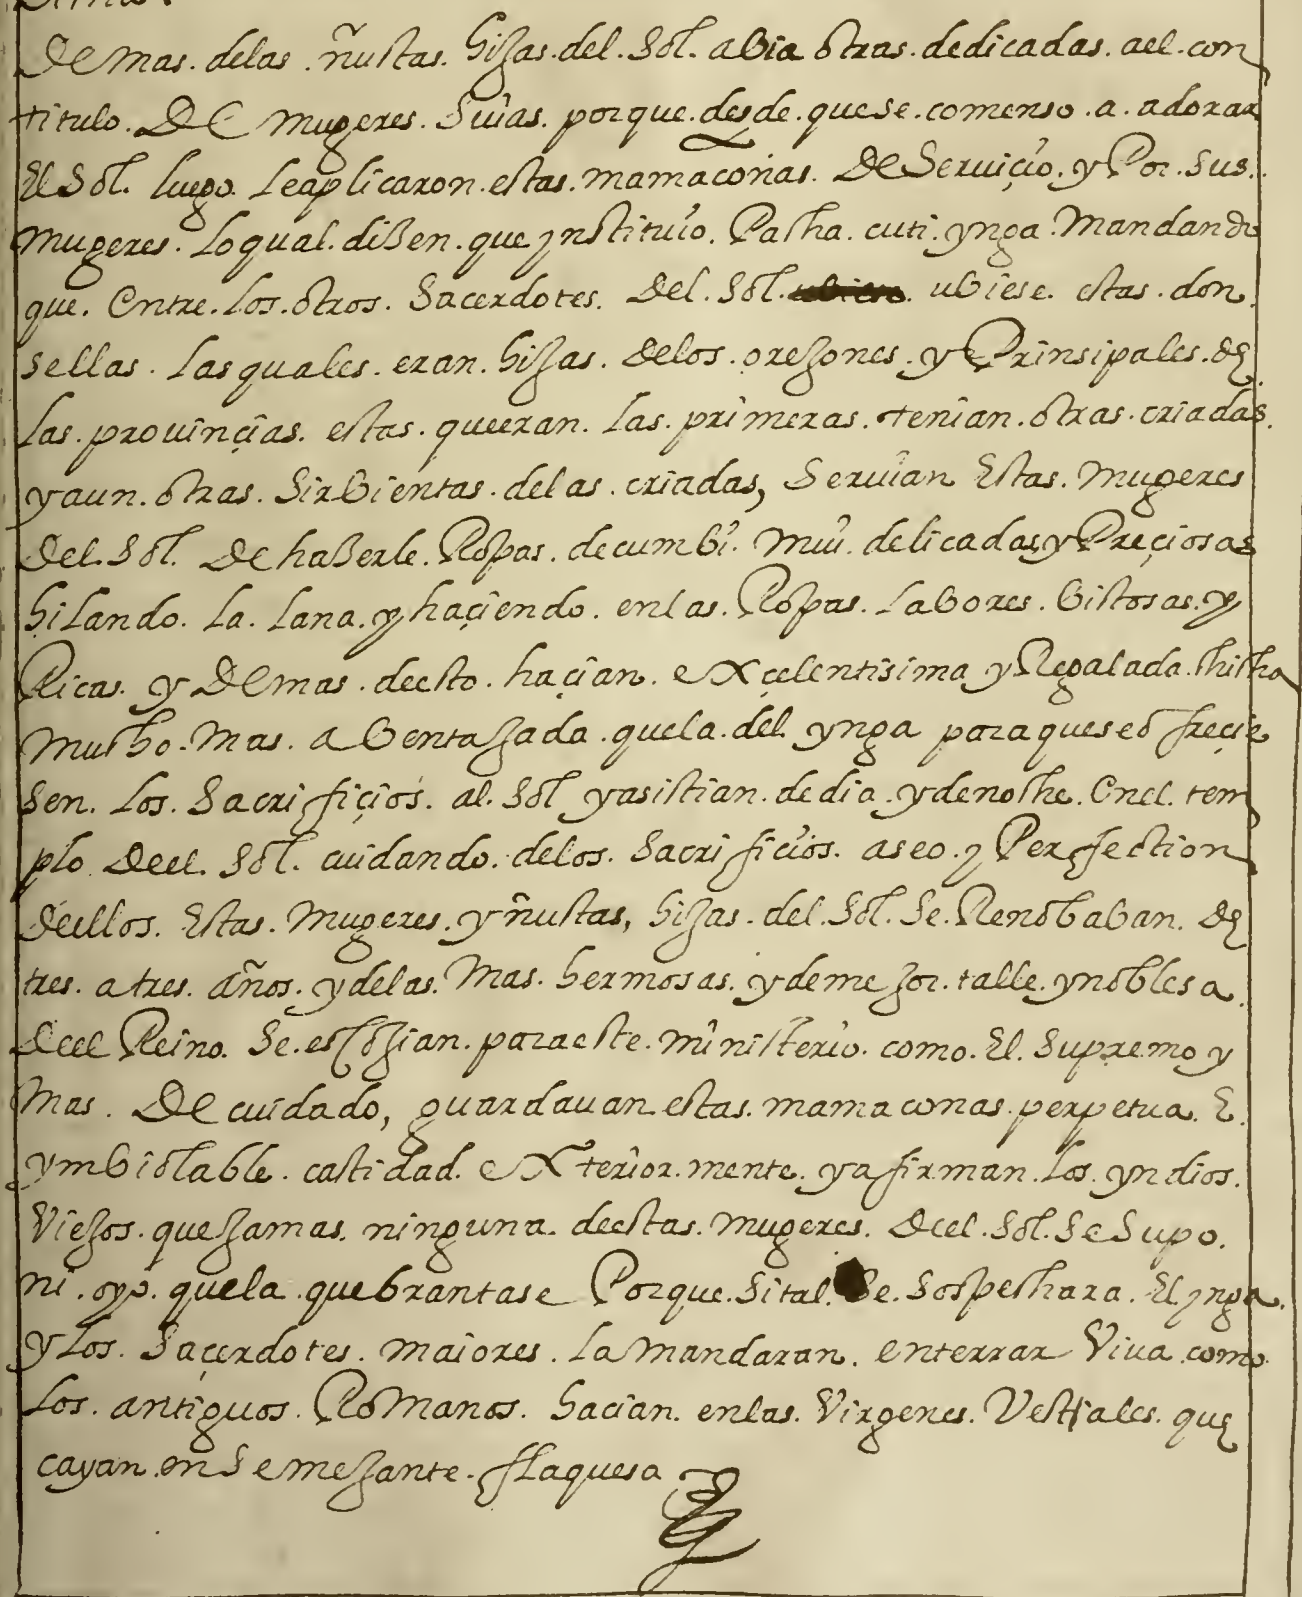 Demas. delas. ñustas. hijas. del. Sol. abia otras. dedicadas. ael. con
titulo. De mugeres. Suias. porque. desde. quese. comenso. a. adorar
El Sol. luego. leaplicaron. estas. mamaconas. De Seruiçio. y Por. Sus.
mugeres. loqual. disen. que ynstituio. Pachacuti. ynga. Mandando
que. Entre. los. otros. Sacerdotes. Del. Sol. ubiese. estas. don
sellas. las quales. eran. hijas. delos. orejones. y Prinsipales. de
las. prouinçias. estas. queeran. las. primeras. tenian. otras. criadas.
yaun. otras. Sirbientas. delas. criadas, Seruian Estas. mugeres
Del. Sol. De haserle. Ropas. decumbi. mui. delicadas, y Preçiosas
hilando. la. lana. y haçiendo. enlas. Ropas. labores. bistosas. y
Ricas. y Demas. deesto. haçian. eXçelentisima y Regalada. chicha
mucho. mas. abentajada. quela. del. ynga paraqueseofreçie
sen. los. Sacrifiçios. al. Sol yasistian. dedia. ydenoche. Enel. tem
plo. Deel. Sol. cuidando. delos. Sacrificios. aseo. y Perfection
Deellos. Estas. mugeres. y ñustas, hijas. del. Sol. Se. Renobaban. de
tres. atres. años. ydelas. mas. hermosas. ydemejor. talle. ynoblesa.
Deel Reino. Se. escojian. paraeste. ministerio. como. El. Supremo y
mas. De cuidado, guardauan. estas. mamaconas. perpetua. E.
ymbiolable. castidad. eXterior. mente. yafirman. los. yndios.
Viejos. quejamas. ninguna. deestas. mugeres. Deel. Sol. Se Supo.
ni. oyo. quela. quebrantase Porque. Sital. Se. Sospechara. El ynga.
y los. Saçerdotes. maiores. la mandaran. enterrar Viua. como
los. antiguos. Romanos. hacian. enlas. Virgenes. Vestales. que
cayan. en Semejante. flaquesa